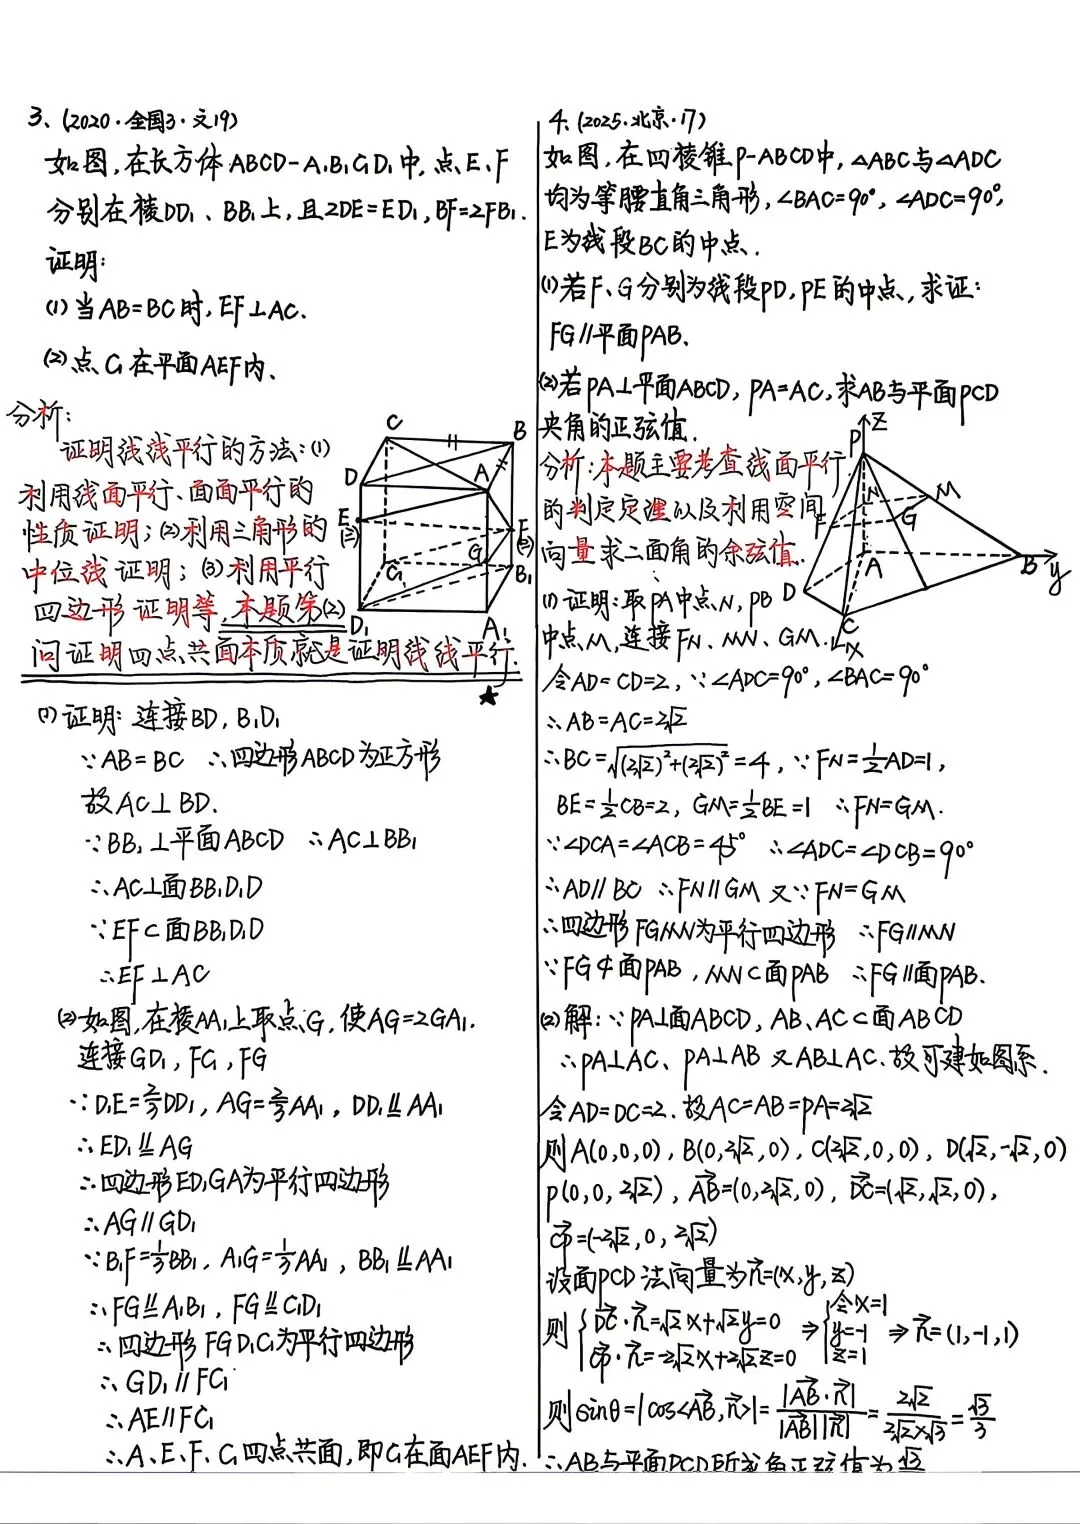 3、(2020·全国3·文19)
如图,在长方体ABCD-A₁B₁C₁D₁中,点E、F
分别在棱DD₁、BB₁上,且2DE=ED₁,BF=2FB₁.
证明:
(1)当AB=BC时,EF⊥AC.
(2)点C₁在平面AEF内、
分析:
证明线线平行的方法:(1)
利用线面平行、面面平行的
性质证明;(2)利用三角形的
中位线证明;(3)利用平行
四边形证明等,本题第(2)
问证明四点共面本质就是证明线线平行.
★
C
B
D
A
E
F
(2)
(2)
G
C₁
B₁
D₁
A₁
(1)证明:连接BD,B₁D₁
∵AB=BC ∴四边形ABCD为正方形
故AC⊥BD.
∵BB₁⊥平面ABCD ∴AC⊥BB₁
∴AC⊥面BB₁D₁D
∵EF⊂面BB₁D₁D
∴EF⊥AC
(2)如图,在棱AA₁上取点G,使AG=2GA₁.
连接GD₁,FC₁,FG
∵D₁E=⅔DD₁,AG=⅔AA₁,DD₁⫫AA₁
∴ED₁⫫AG
∴四边形ED₁GA为平行四边形
∴AG∥GD₁
∵B₁F=⅓BB₁,A₁G=⅓AA₁,BB₁⫫AA₁
∴FG⫫A₁B₁,FG⫫C₁D₁
∴四边形FGD₁C₁为平行四边形
∴GD₁∥FC₁
∴AE∥FC₁
∴A、E、F、C₁四点共面,即C₁在面AEF内.
4、(2025·北京·17)
如图,在四棱锥P-ABCD中,△ABC与△ADC
均为等腰直角三角形,∠BAC=90°,∠ADC=90°,
E为线段BC的中点.
(1)若F、G分别为线段PD,PE的中点,求证:
FG∥平面PAB.
(2)若PA⊥平面ABCD,PA=AC,求AB与平面PCD
夹角的正弦值.
分析:本题主要考查线面平行
的判定定理以及利用空间
向量求二面角的余弦值.
z
P
N
M
F
G
A
B
y
D
C
x
(1)证明:取PA中点N,PB
中点M,连接FN、MN、GM.
令AD=CD=2,∵∠ADC=90°,∠BAC=90°
∴AB=AC=2√2
∴BC=√((2√2)²+(2√2)²)=4,∵FN=½AD=1,
BE=½CB=2,GM=½BE=1 ∴FN=GM.
∵∠DCA=∠ACB=45° ∴∠ADC=∠DCB=90°
∴AD∥BC ∴FN∥GM 又∵FN=GM
∴四边形FGMN为平行四边形 ∴FG∥MN
∵FG⊄面PAB,MN⊂面PAB ∴FG∥面PAB.
(2)解:∵PA⊥面ABCD,AB、AC⊂面ABCD
∴PA⊥AC、PA⊥AB 又AB⊥AC.故可建如图系.
令AD=DC=2.故AC=AB=PA=2√2
则A(0,0,0),B(0,2√2,0),C(2√2,0,0),D(√2,-√2,0)
P(0,0,2√2),AB→=(0,2√2,0),DC→=(√2,√2,0),
CP→=(-2√2,0,2√2)
设面PCD法向量为n→=(x,y,z)
则{DC→·n→=√2x+√2y=0 CP→·n→=-2√2x+2√2z=0 ⇒{令x=1 y=-1 z=1 ⇒n→=(1,-1,1)
则sinθ=|cos<AB→,n→>|=|AB→·n→|/|AB→||n→|=2√2/(2√2×√3)=√3/3
∴AB与平面PCD所成角正弦值为√3